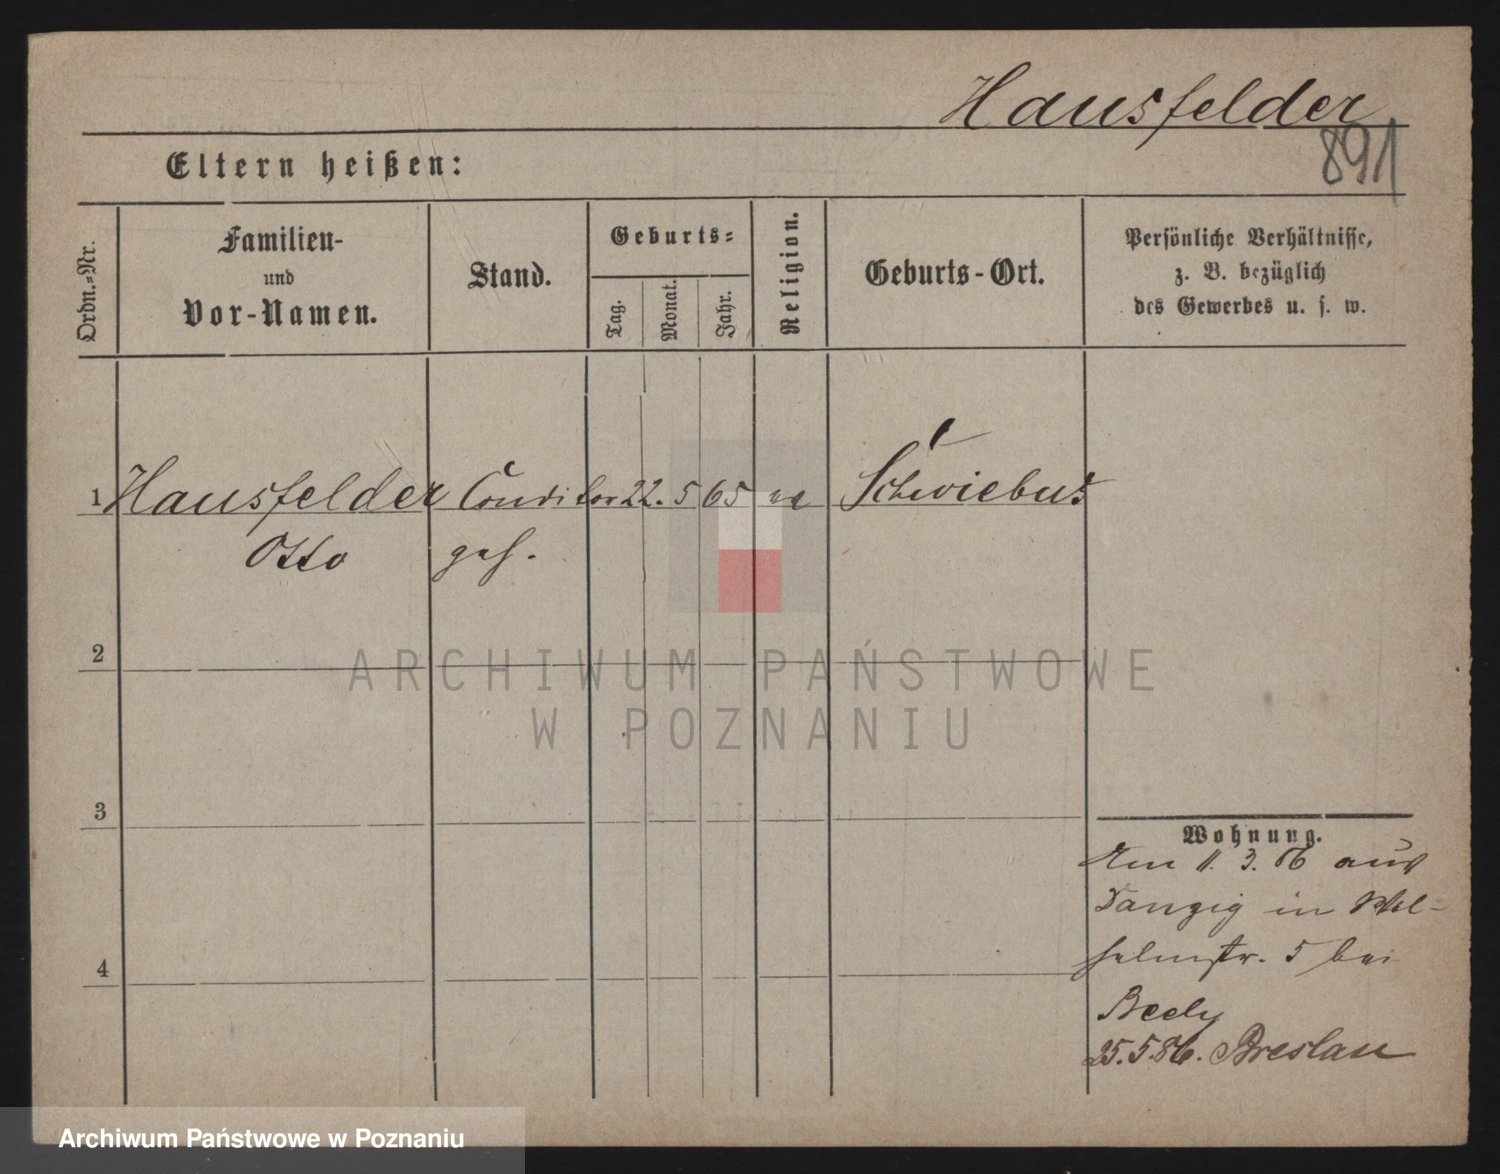 Hausfelder
891
Eltern heißen:
Ordn.-Nr.
Familien-
und
Vor-Namen.
Stand.
Geburts-
Tag.
Monat.
Jahr.
Religion.
Geburts-Ort.
Persönliche Verhältnisse,
z. B. bezüglich
des Gewerbes u. s. w.
1 Hausfelder Conditor 22. 5 65 Schwiebus
Otto geh.
2
3
4
ARCHIWUM PAŃSTWOWE
W POZNANIU
Wohnung.
Am 11. 3. 86 aus
Danzig in Wil-
helmstr. 5 bei
Beely
25. 5. 86. Breslau
Archiwum Państwowe w Poznaniu